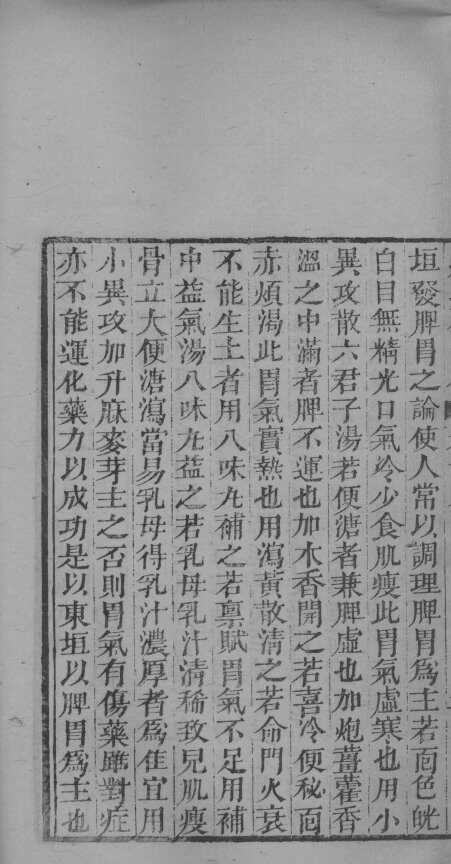 垣發脾胃之論使人常以調理脾胃爲主若面色㿠
白目無精光口氣冷少食肌瘦此胃氣虛寒也用小
異攻散六君子湯若便溏者兼脾虛也加炮薑藿香
溫之中滿者脾不運也加木香開之若喜冷便秘面
赤煩渴此胃氣實熱也用瀉黃散淸之若命門火衰
不能生土者用八味丸補之若禀賦胃氣不足用補
中益氣湯八味丸益之若乳母乳汁淸稀致兒肌瘦
骨立大便溏瀉當易乳母得乳汁濃厚者爲佳宜用
小異攻加升麻麥芽主之否則胃氣有傷藥雖對症
亦不能運化藥力以成功是以東垣以脾胃爲主也